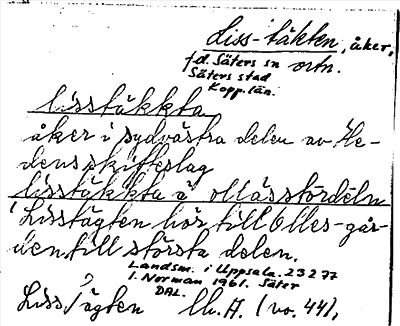 Liss-täkten, åker,
f.d. Säters sn ortn.
Säters stad
Kopp. län.
lisstäkkta
åker i sydvästra delen av He-
dens skifteslag
lisstäkkta å ollasstördeln
Lisstägten hör till Olles-går-
den till största delen.
Landsm. i Uppsala. 23277
I. Norman 1961. Säter
DAL.
Liss/ägten Ll.H. (vo. 44),